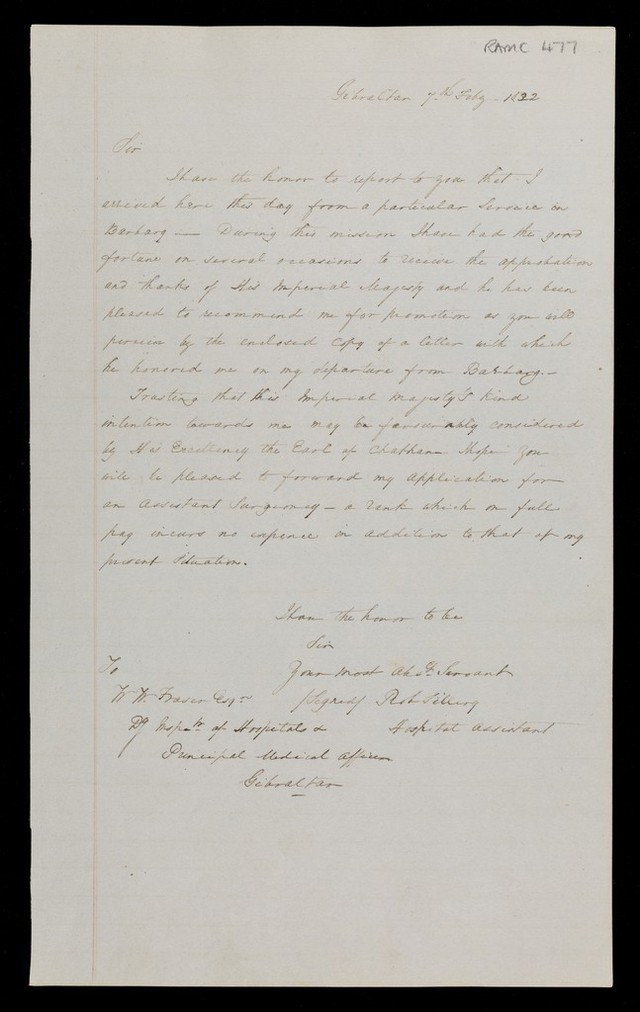 RAMC 477
Gibraltar 7th Feby. 1822
Sir
I have the honor to report to you that I
arrived here this day from a particular Service in
Barbary — During this mission I have had the good
fortune on several occasions to receive the approbation
and thanks of His Imperial Majesty and he has been
pleased to recommend me for promotion as you will
perceive by the enclosed Copy of a letter with which
he honored me on my departure from Barbary. —
Trusting that this Imperial Majesty's kind
intention towards me may be favourably considered
by His Excellency the Earl of Chatham I hope you
will be pleased to forward my application for
an Assistant Surgeoncy — a rank which on full
pay incurs no expence in addition to that of my
present Situation.
I have the honor to be
Sir
Your most Obdt. Servant
To
W W. Fraser Esqr (Signed) Robt
Dy Inspr. of Hospitals & Hospital Assistant
Principal Medical Officer
Gibraltar